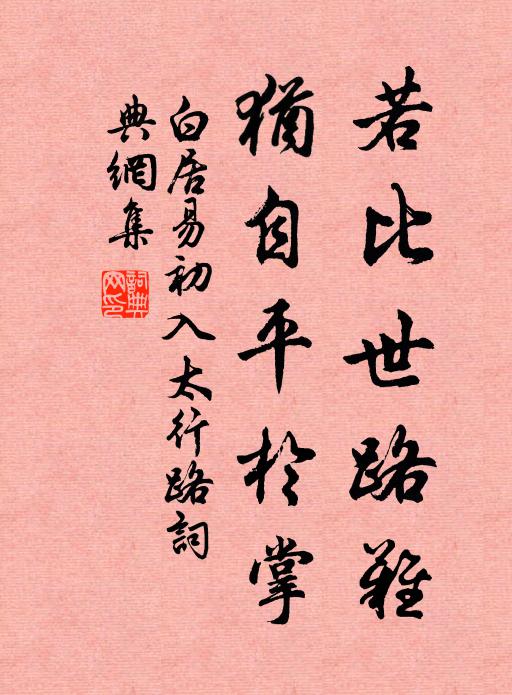 若比世路難
猶自平於掌
白居易初入太行路詞
典網集
詞典
网印